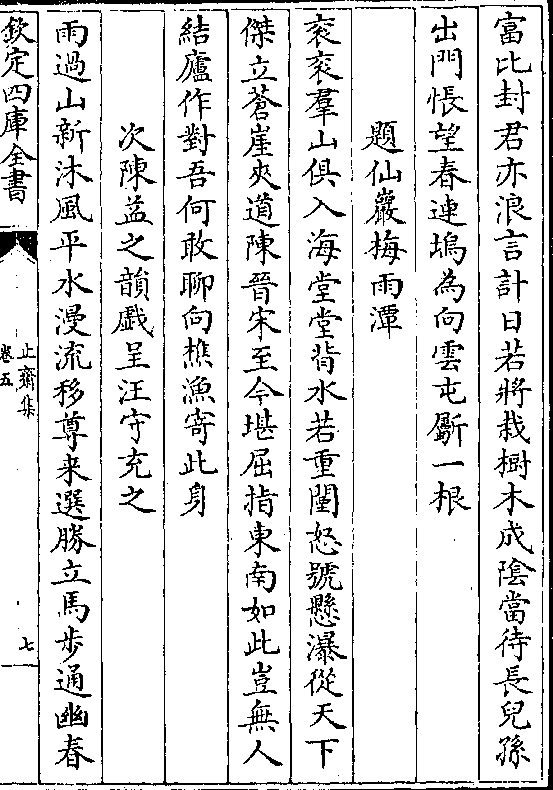 富比封君亦浪言計日若將栽樹木成隂當待長兒孫
出門悵望春連塢為向雲屯斸一根
題仙巖梅雨潭
衮衮羣山俱入海堂堂背水若重闉怒號懸瀑從天下
傑立蒼崖夾道陳晉宋至今堪屈指東南如此豈無人
結廬作對吾何敢聊向樵漁寄此身
次陳益之韻戲呈汪守充之
雨過山新沐風平水漫流移尊来選勝立馬步通幽春
欽定四庫全書
止齋集
卷五
七